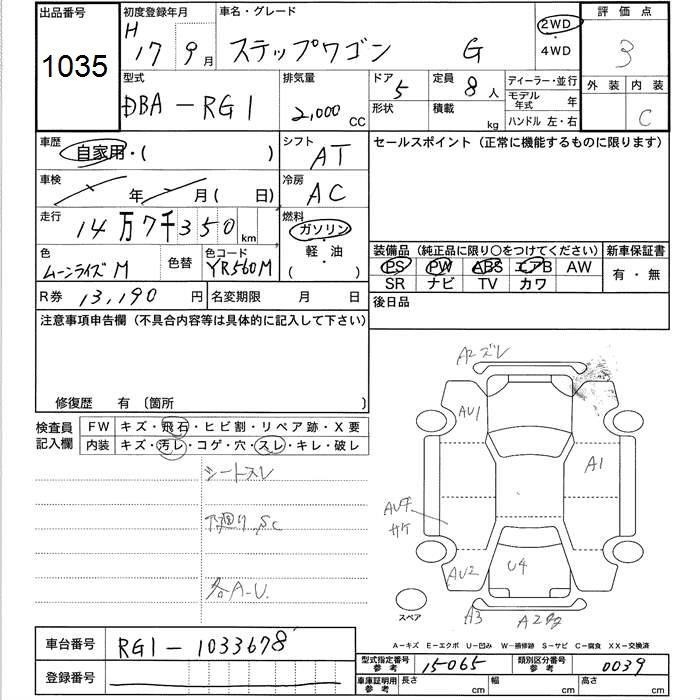 出品番号 初度登録年月 車名・グレード 2WD 評価点
1035 H 17 9月 ステップワゴン G ・4WD 3
型式 排気量 ドア 5 定員 8人 ディーラー・並行 外装 内装
DBA-RG1 2,000 CC 形状 積載 kg モデル年式 年 C
ハンドル 左・右
車歴 自家用・( ) シフト AT セールスポイント (正常に機能するものに限ります)
車検 年 月( 日) 冷房 AC
走行 14万7千350km 燃料 ガソリン
軽・油
( )
色 ムーンライズM 色替 色コード YR560M 装備品 (純正品に限り〇をつけてください) 新車保証書
PS PW ABS エアB AW 有・無
SR ナビ TV カワ
R券 13,190円 名変期限 月 日 後日品
注意事項申告欄 (不具合内容等は具体的に記入して下さい)
修復歴 有 〔箇所 〕
検査員記入欄 FW キズ・飛石・ヒビ割・リペア跡・X要
内装 キズ・汚レ・コゲ・穴・スレ・キレ・破レ
シートスレ
下廻り Sc
各A-U.
A2ズレ
AU1
A1
AU7
サケ
AU2
U4
A3
A2
スペア
A-キズ E-エクボ U-凹み W-補修跡 S-サビ C-腐食 XX-交換済
車台番号 RG1-1033678
登録番号
型式指定番号 参考 15065 類別区分番号 参考 0039
車庫証明用 参考 長さ cm 幅 cm 高さ cm